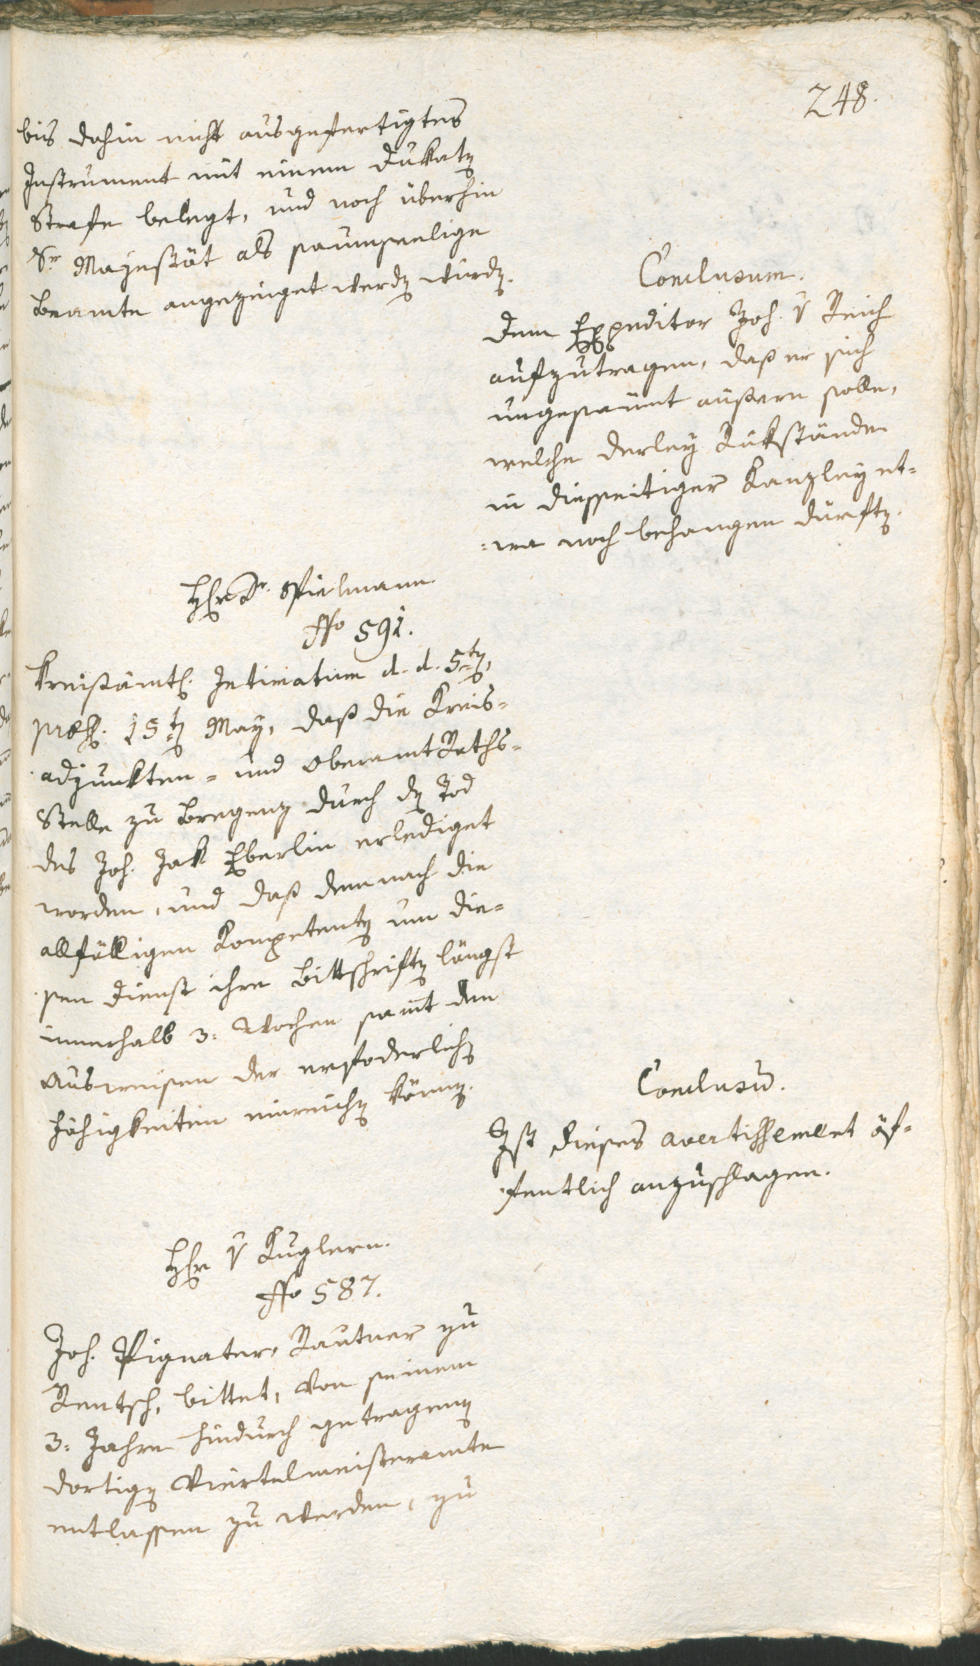 248.
bis dahin nicht ausgefertigtes
Instrument mit einem Dukaten
Strafe belegt, und noch überhin
Sr Majestät als saumselige
Beamte angezeiget werden würden.
Conclusum.
Dem Expeditor Joh. v Reich
aufzutragen, daß er sich
ungesaumt äußern solle,
welche derley Rükstände
in diesseitiger Kanzley et=
=wa noch behangen dürften.
Hr Dr. Spielmann
No 591.
Kreisämtl. Intimatum d. d. 5ten,
præs. 15ten May, daß die Kreis=
adjunkten= und Oberamt Raths=
Stelle zu Bregenz durch den Tod
des Joh. Jak Eberlin erlediget
worden, und daß demnach die
allfälligen Kompetenten um die=
sen Dienst ihre Bittschriften längst
innerhalb 3: Wochen samt den
Ausweisen der erfoderlichen
Fähigkeiten einreichen können.
Conclusum.
Ist dieses avertissement öf=
fentlich anzuschlagen.
Hr v Kuglern.
No 587.
Joh. Pignater, Rautner zu
Rentsch, bittet, von seinem
3: Jahre hindurch getragenen
dortigen Viertelmeisteramte
entlassen zu werden, zu